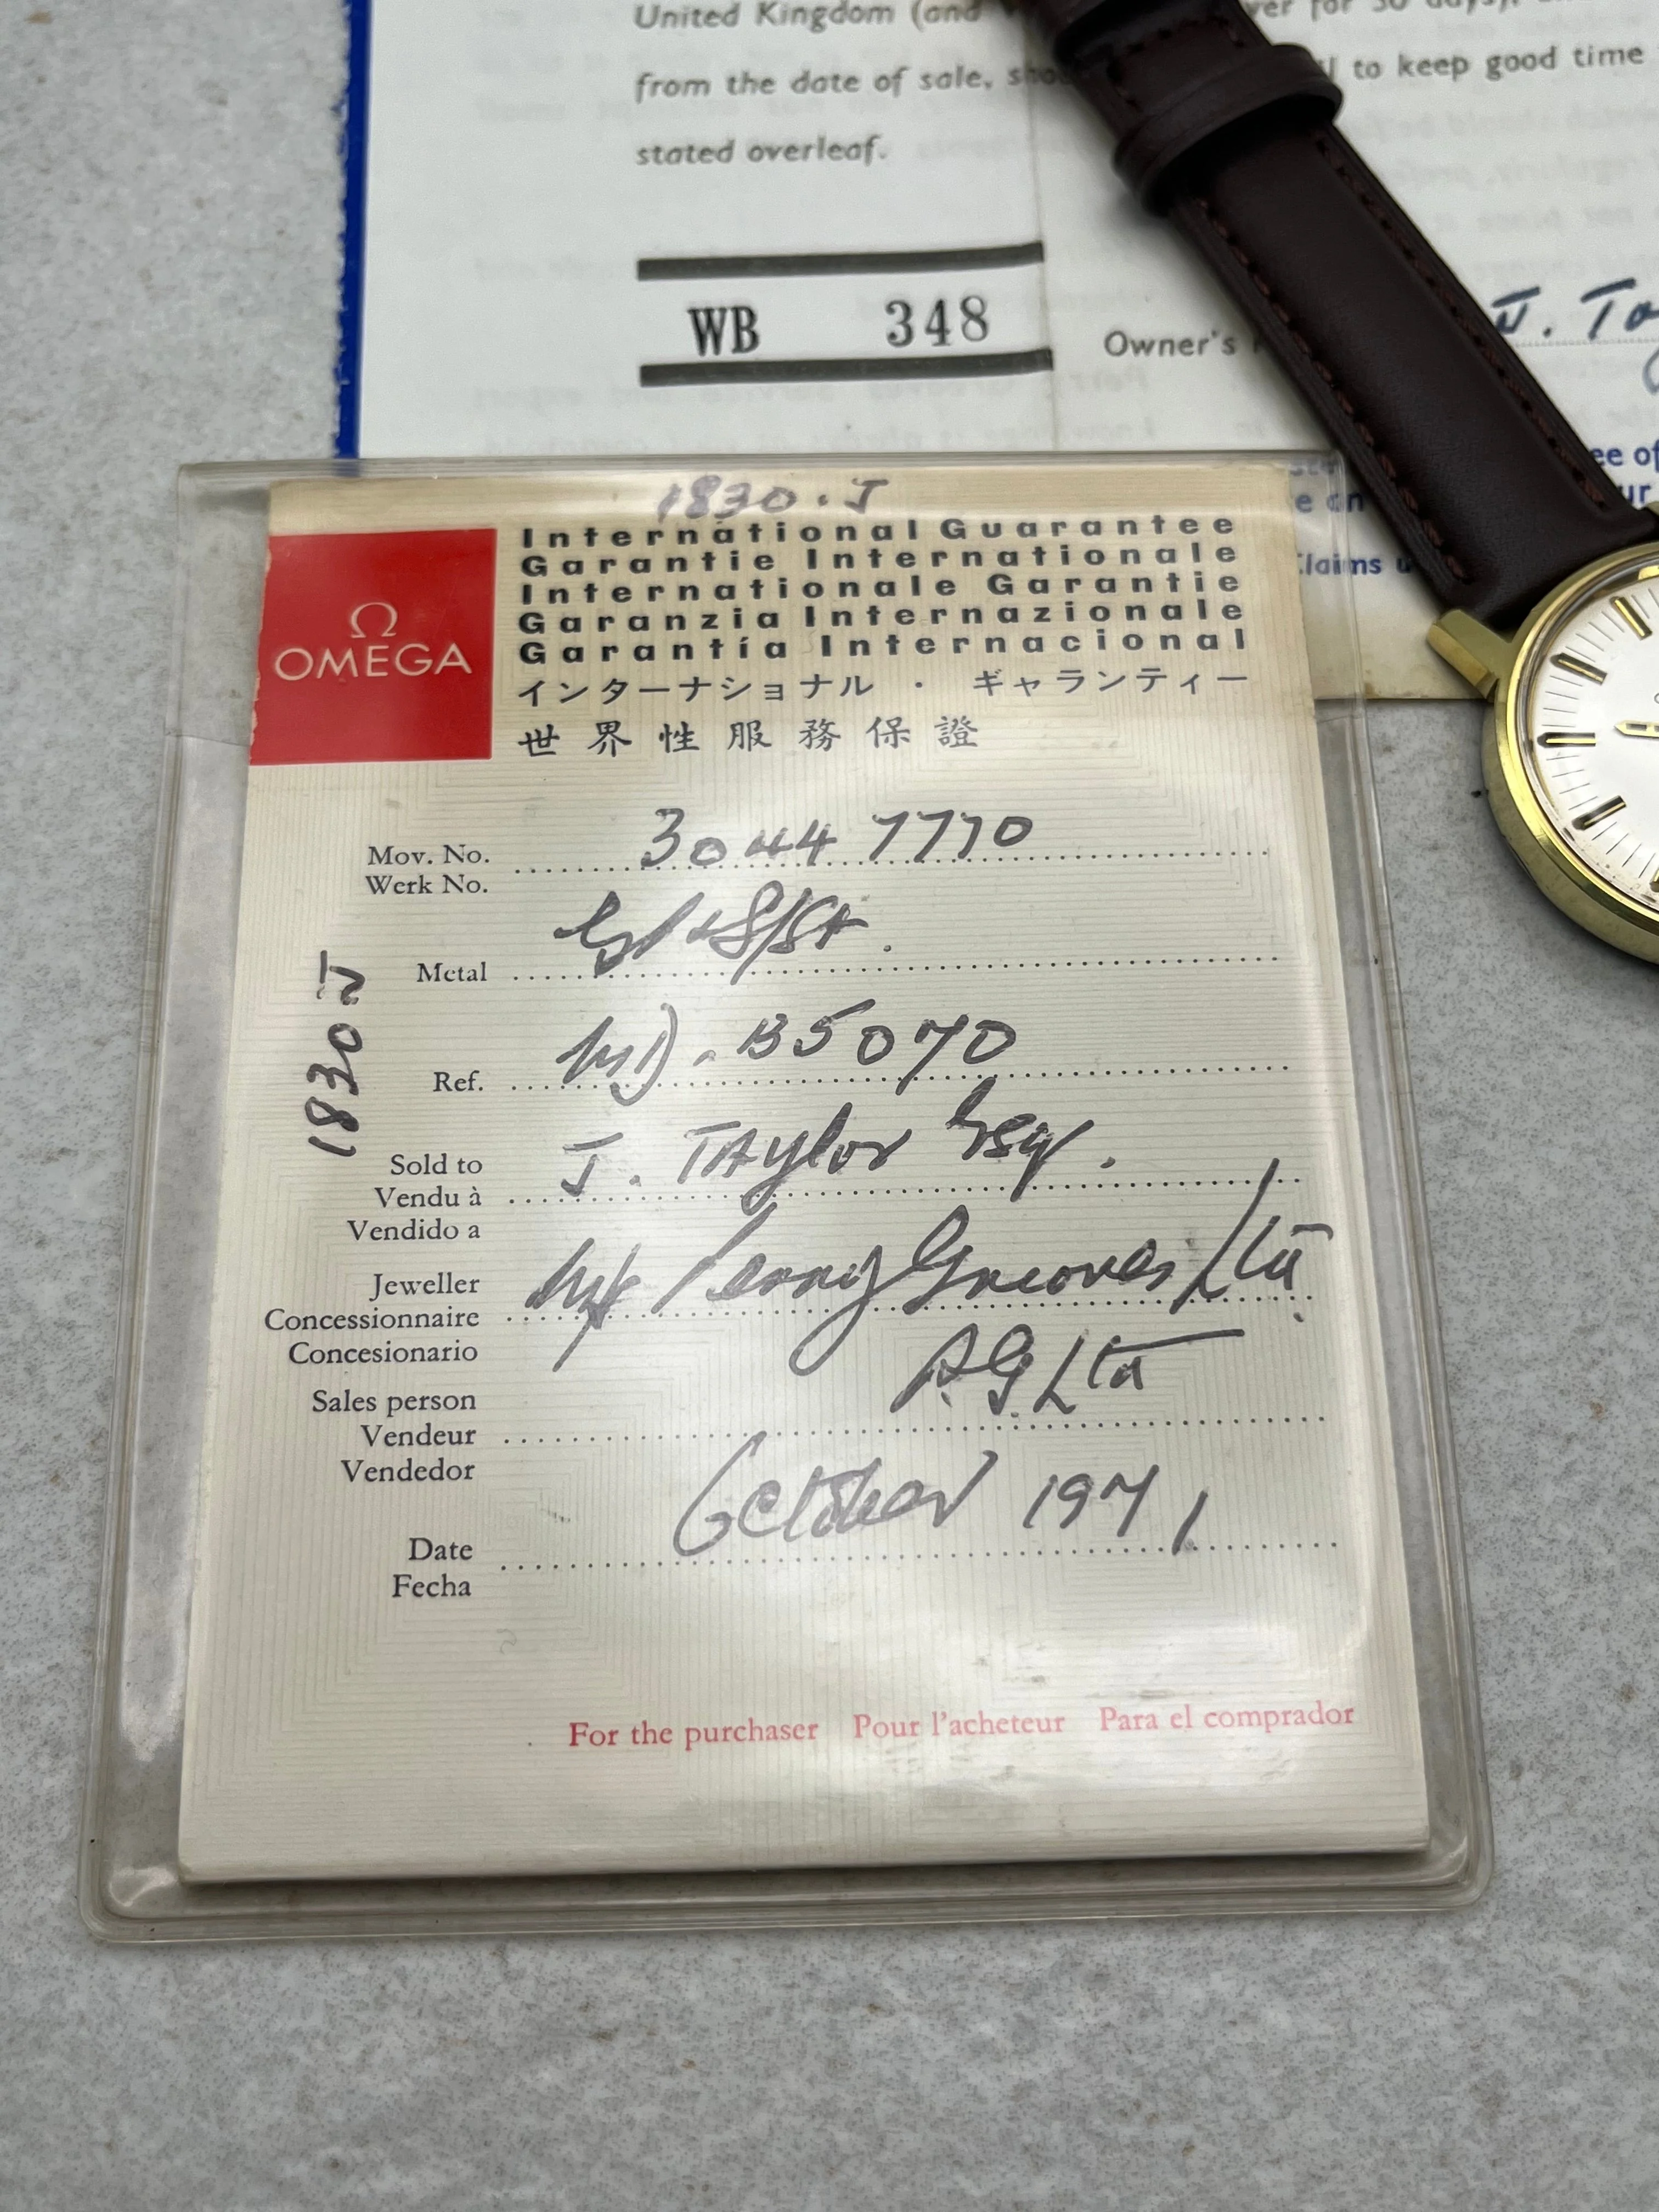 United Kingdom (and ver for 30 days),
from the date of sale, to keep good time
stated overleaf.
WB 348
Owner's J. Tay
ee of
ur
e on
Claims u
1830.J
International Guarantee
Garantie Internationale
Internationale Garantie
Garanzia Internazionale
Garantía Internacional
インターナショナル・ギャランティー
世界性服務保證
Ω
OMEGA
Mov. No. 3044 7770
Werk No.
Metal + S/St.
1830 J
Ref. B5070
Sold to J. TAylor Esq.
Vendu à
Vendido a
Jeweller Perry Greaves Ltd.
Concessionnaire
Concesionario
Sales person P.G. Ltd
Vendeur
Vendedor
Date October 1971
Fecha
For the purchaser Pour l'acheteur Para el comprador